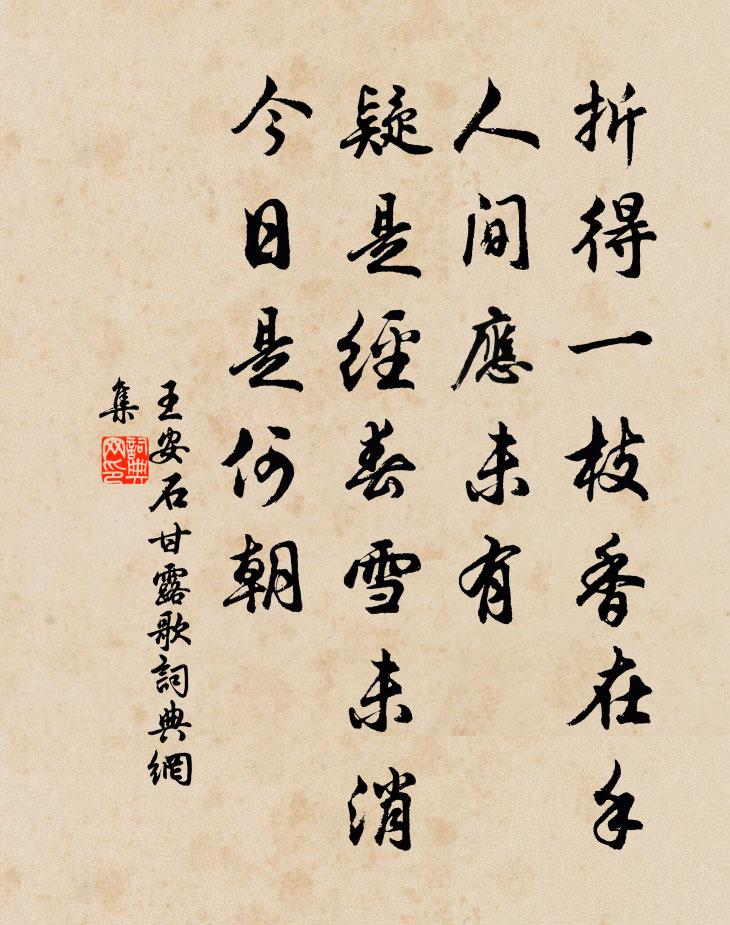 折得一枝香在手
人間應未有
疑是經春雪未消
今日是何朝
王安石甘露歌詞典網
集
詞典网印